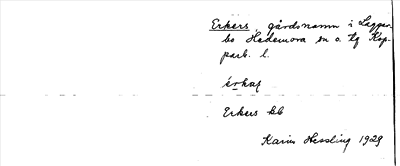 Erkers, gårdsnamn i Lappen-
bo Hedemora sn o. tg Kop-
parb. l.
Erkers bb
Karin Hessling 1929